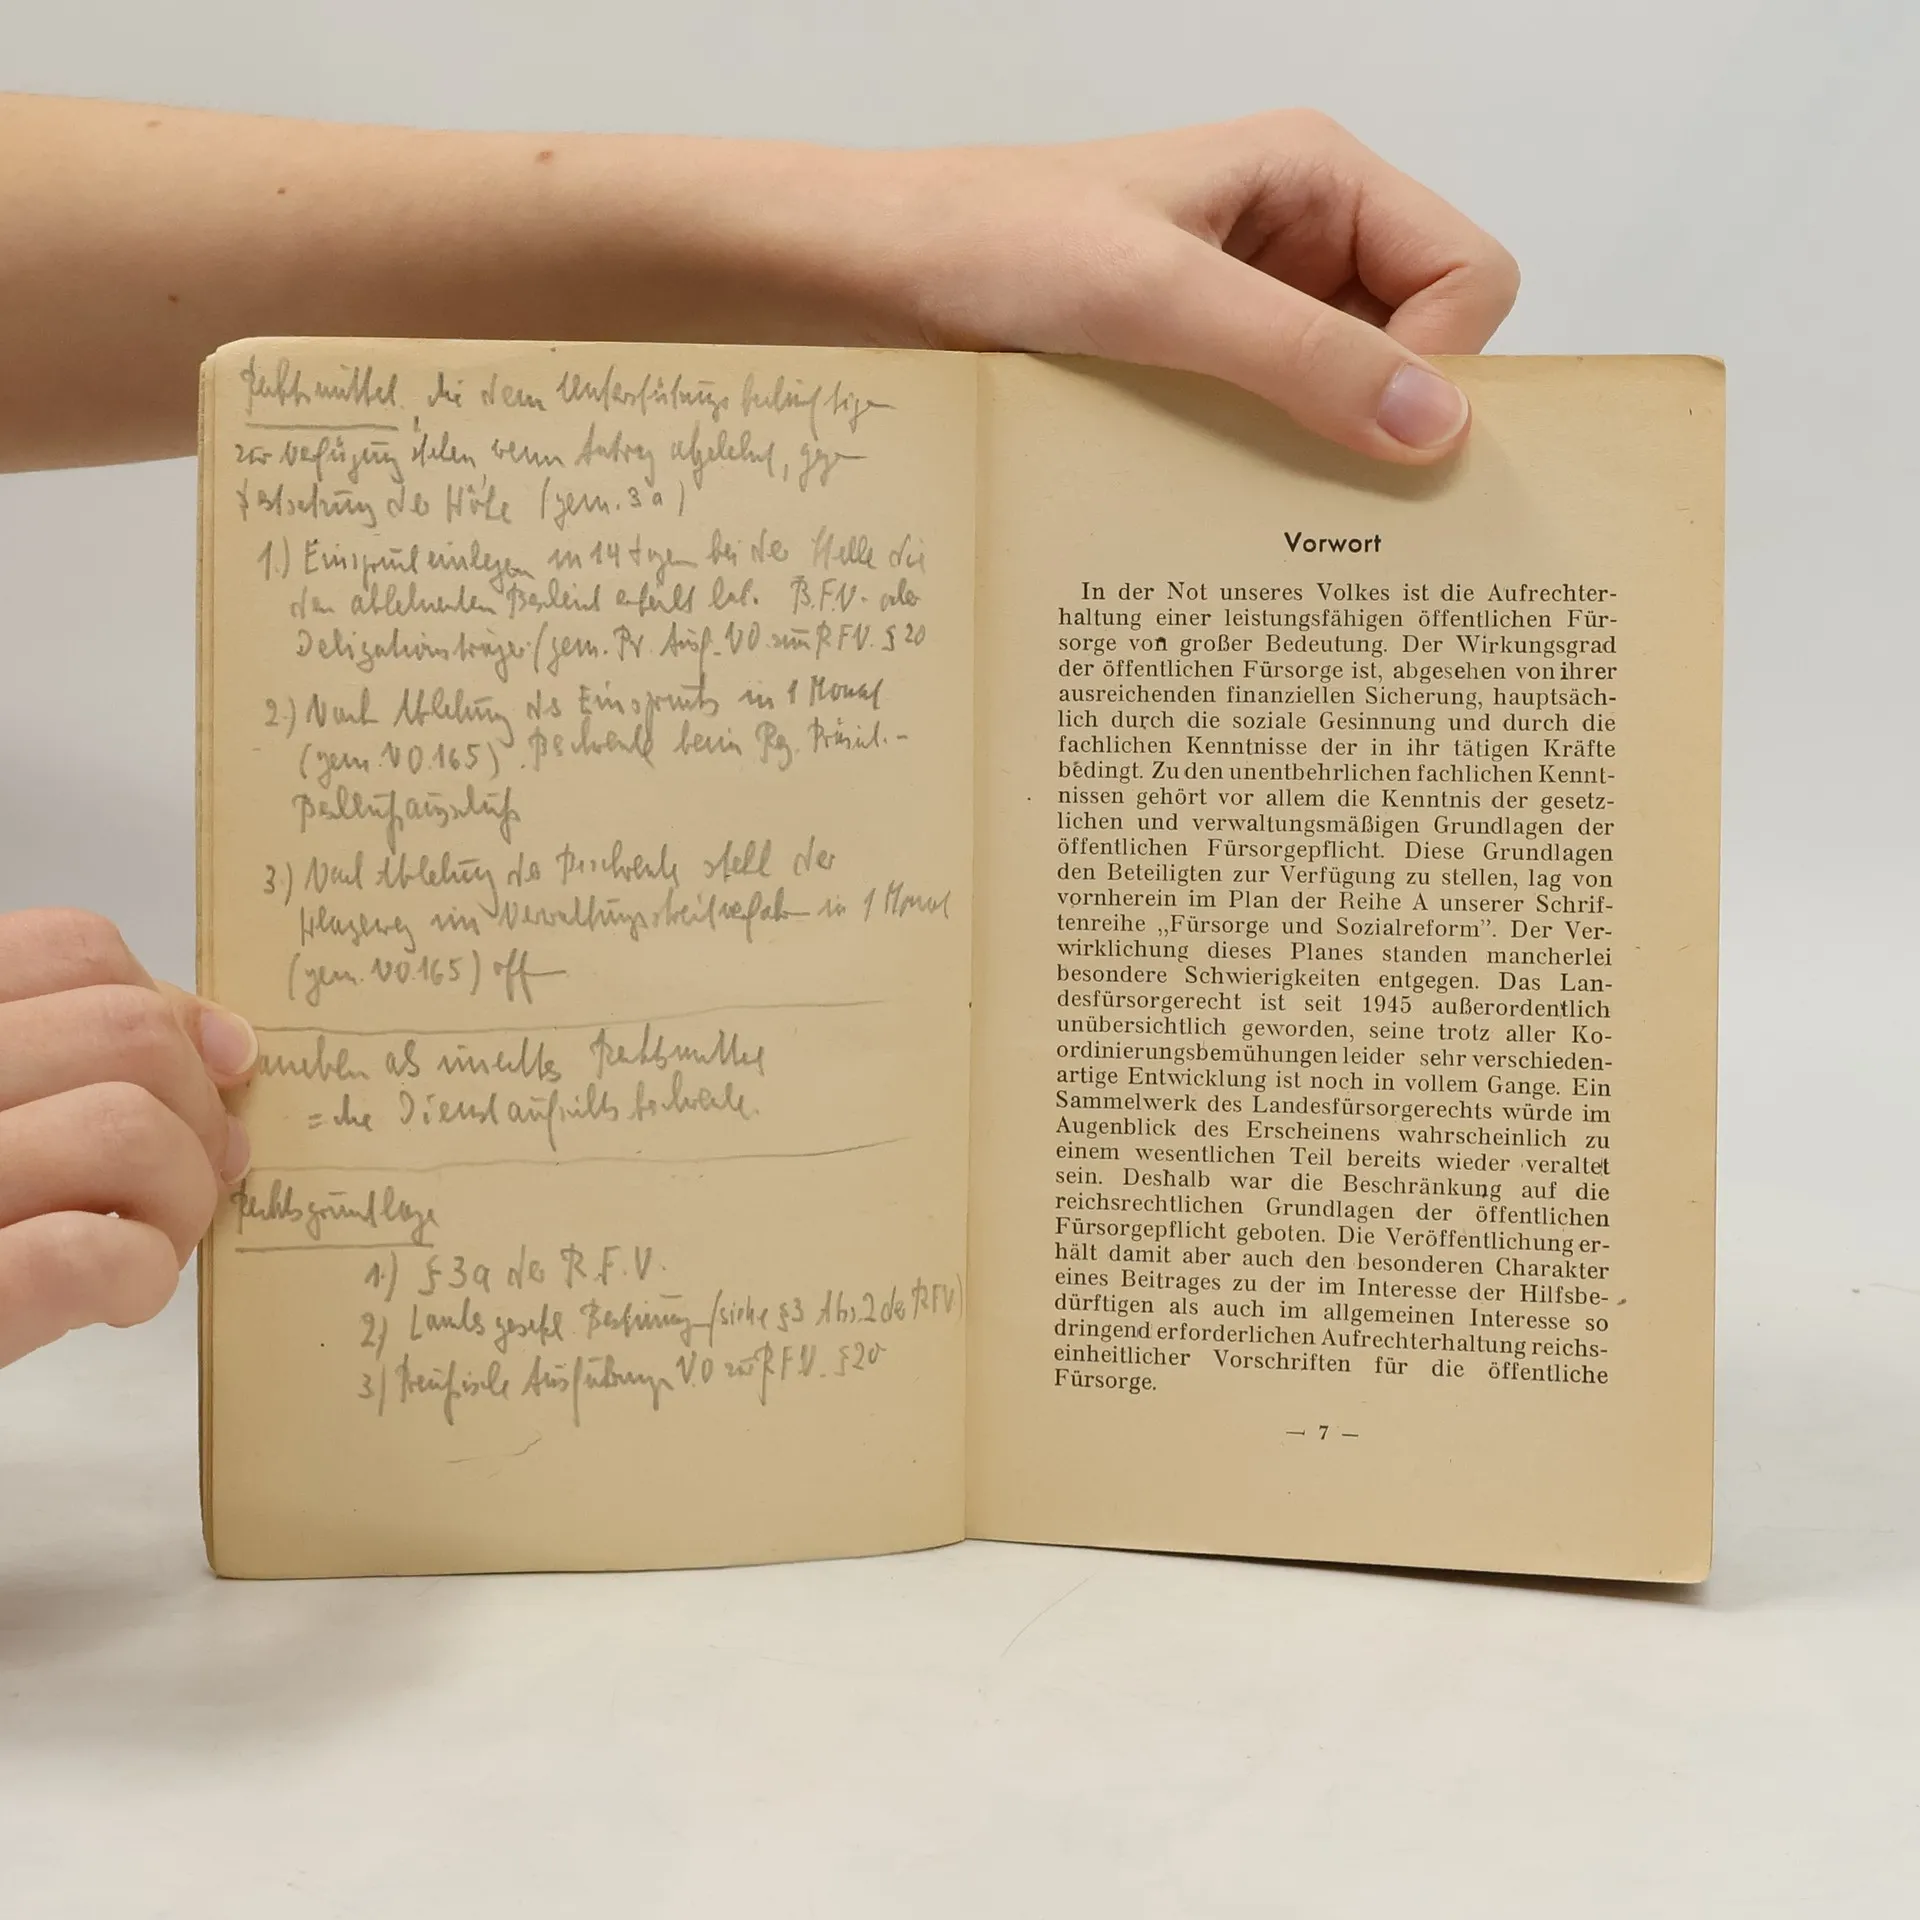 Rechtsmittel, die dem Unterstützungsbedürftigen
zur Verfügung stehen, wenn Antrag abgelehnt, gegen
Festsetzung der Höhe (gem. 3a)
1.) Einspruch einlegen in 14 Tagen bei der Stelle die
den ablehnenden Bescheid erteilt hat. B.F.V. oder
Delegationsträger (gem. Pr. Ausf. VO zur RFV. § 20
2.) Nach Ablehnung des Einspruchs in 1 Monat
(gem. VO.165). Beschwerde beim Reg. Präsid.-
Beschlußausschuß
3.) Nach Ablehnung der Beschwerde steht der
Klageweg im Verwaltungsstreitverfahren in 1 Monat
(gem. VO.165) offen
daneben als Rechtsmittel
= die Dienstaufsichtsbeschwerde.
Rechtsgrundlage
1.) § 3a der R.F.V.
2) Landesgesetzl. (siehe § 3 Abs. 2 der RFV)
3) Preußische Ausführungs V.O zur R.F.V. § 20
Vorwort
In der Not unseres Volkes ist die Aufrechter-
haltung einer leistungsfähigen öffentlichen Für-
sorge von großer Bedeutung. Der Wirkungsgrad
der öffentlichen Fürsorge ist, abgesehen von ihrer
ausreichenden finanziellen Sicherung, hauptsäch-
lich durch die soziale Gesinnung und durch die
fachlichen Kenntnisse der in ihr tätigen Kräfte
bedingt. Zu den unentbehrlichen fachlichen Kennt-
nissen gehört vor allem die Kenntnis der gesetz-
lichen und verwaltungsmäßigen Grundlagen der
öffentlichen Fürsorgepflicht. Diese Grundlagen
den Beteiligten zur Verfügung zu stellen, lag von
vornherein im Plan der Reihe A unserer Schrif-
tenreihe „Fürsorge und Sozialreform”. Der Ver-
wirklichung dieses Planes standen mancherlei
besondere Schwierigkeiten entgegen. Das Lan-
desfürsorgerecht ist seit 1945 außerordentlich
unübersichtlich geworden, seine trotz aller Ko-
ordinierungsbemühungen leider sehr verschieden-
artige Entwicklung ist noch in vollem Gange. Ein
Sammelwerk des Landesfürsorgerechts würde im
Augenblick des Erscheinens wahrscheinlich zu
einem wesentlichen Teil bereits wieder veraltet
sein. Deshalb war die Beschränkung auf die
reichsrechtlichen Grundlagen der öffentlichen
Fürsorgepflicht geboten. Die Veröffentlichung er-
hält damit aber auch den besonderen Charakter
eines Beitrages zu der im Interesse der Hilfsbe-
dürftigen als auch im allgemeinen Interesse so
dringend erforderlichen Aufrechterhaltung reichs-
einheitlicher Vorschriften für die öffentliche
Fürsorge.
— 7 —